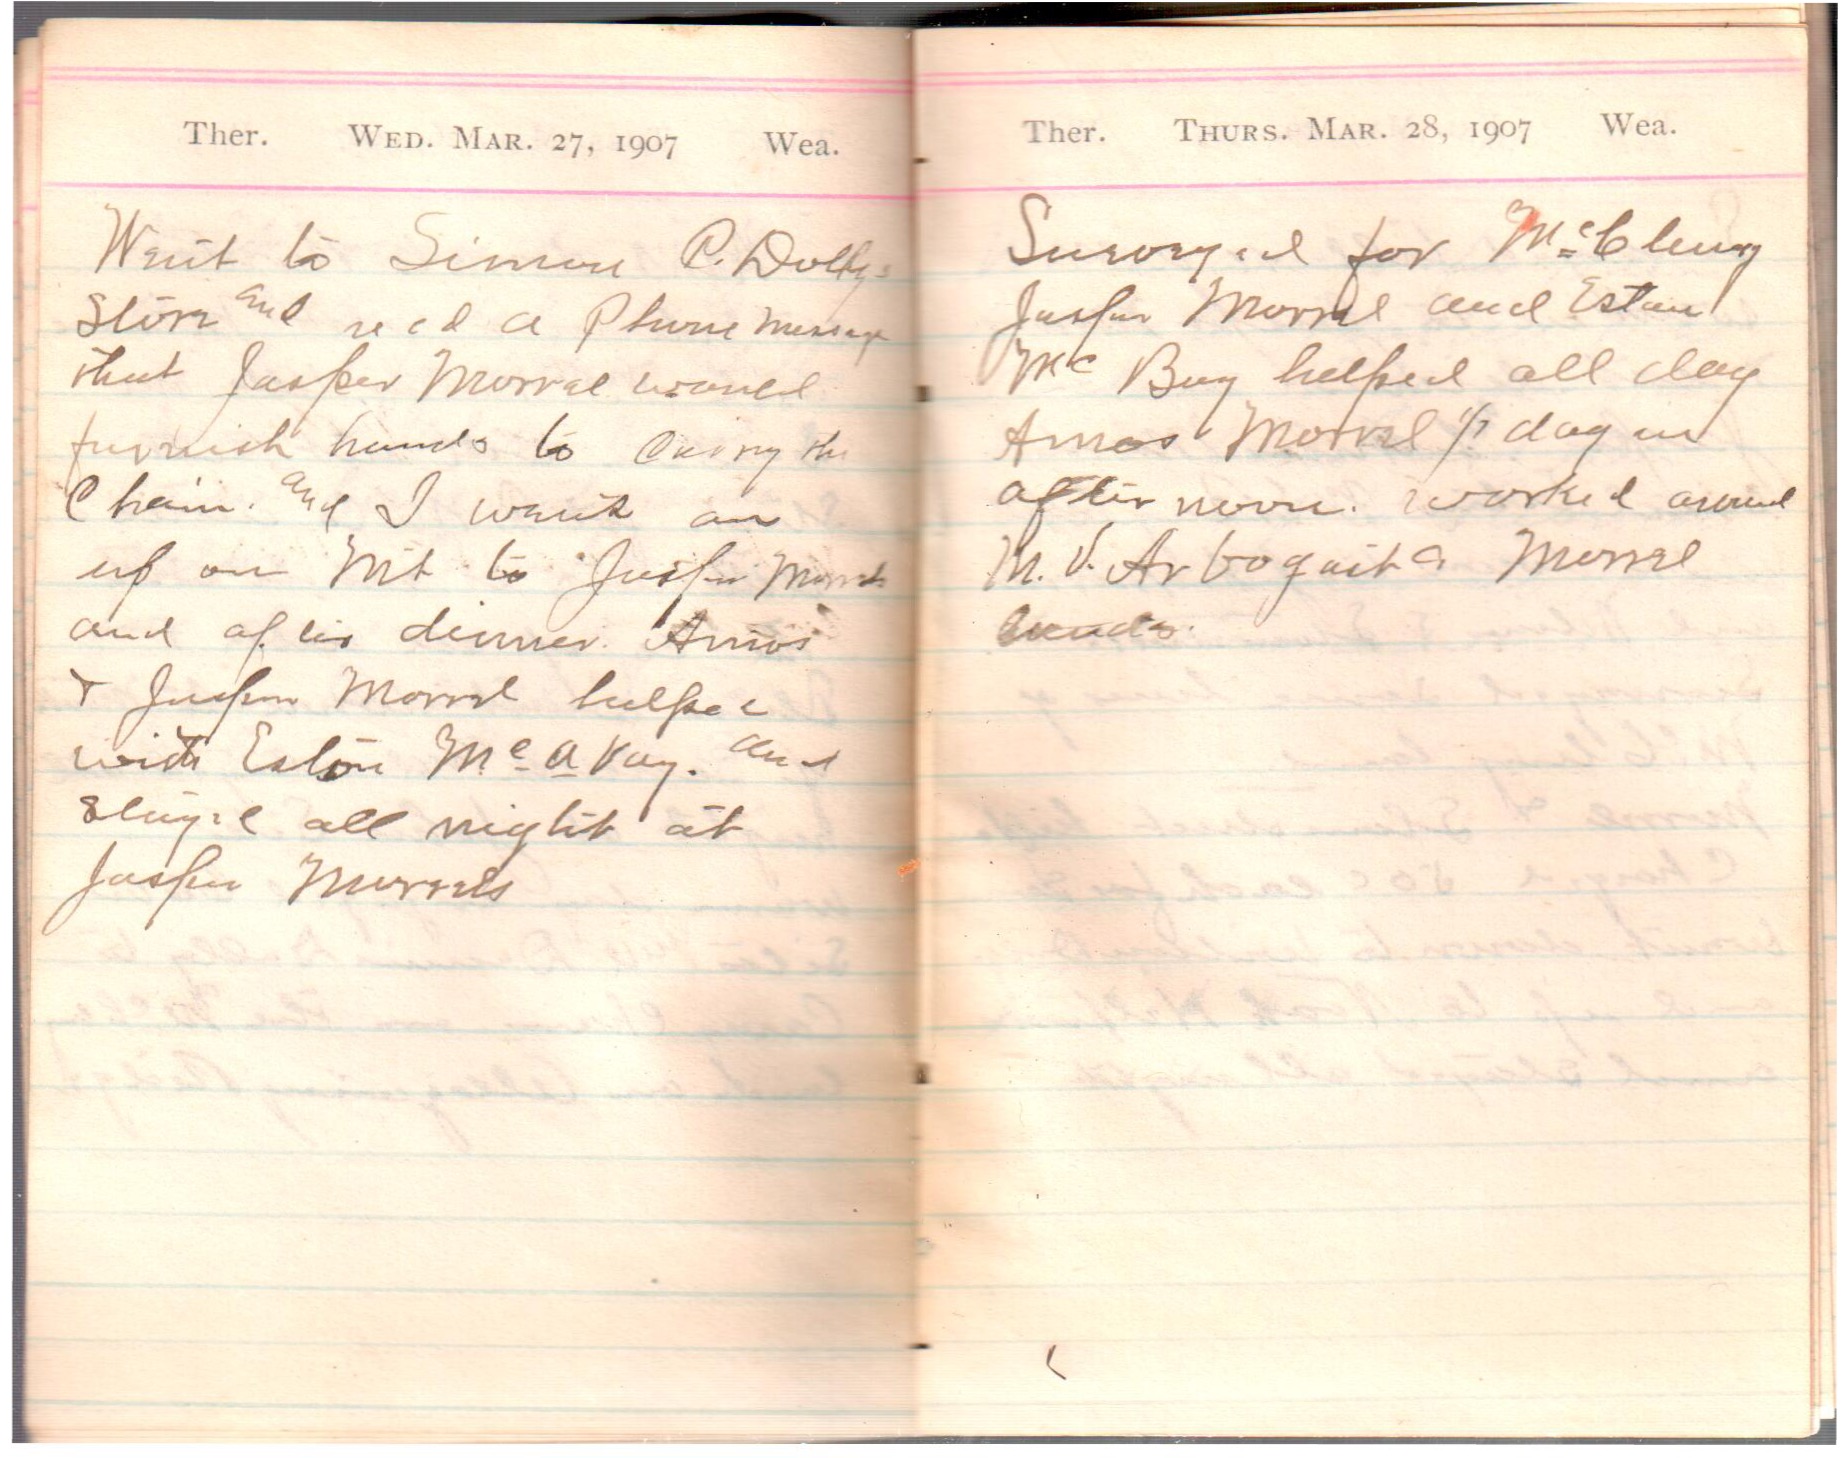 Ther. WED. MAR. 27, 1907 Wea.
Went to Simon P. Dollys
Store and recd a Phone Message
that Jasper Morral would
furnish hands to Carry the
Chain. and I went on
up on Mt to Jasper Morrals
and after dinner. Amos
& Jasper Morral helped
with Eston Mc a Vay. and
Stayed all night at
Jasper Morrals
Ther. THURS. MAR. 28, 1907 Wea.
Surveyed for McClung
Jasper Morral and Eston
Mc Bay helped all day
Amos Morral 1/2 day in
after noon. worked around
M. V. Arbogast & Morral
lands.